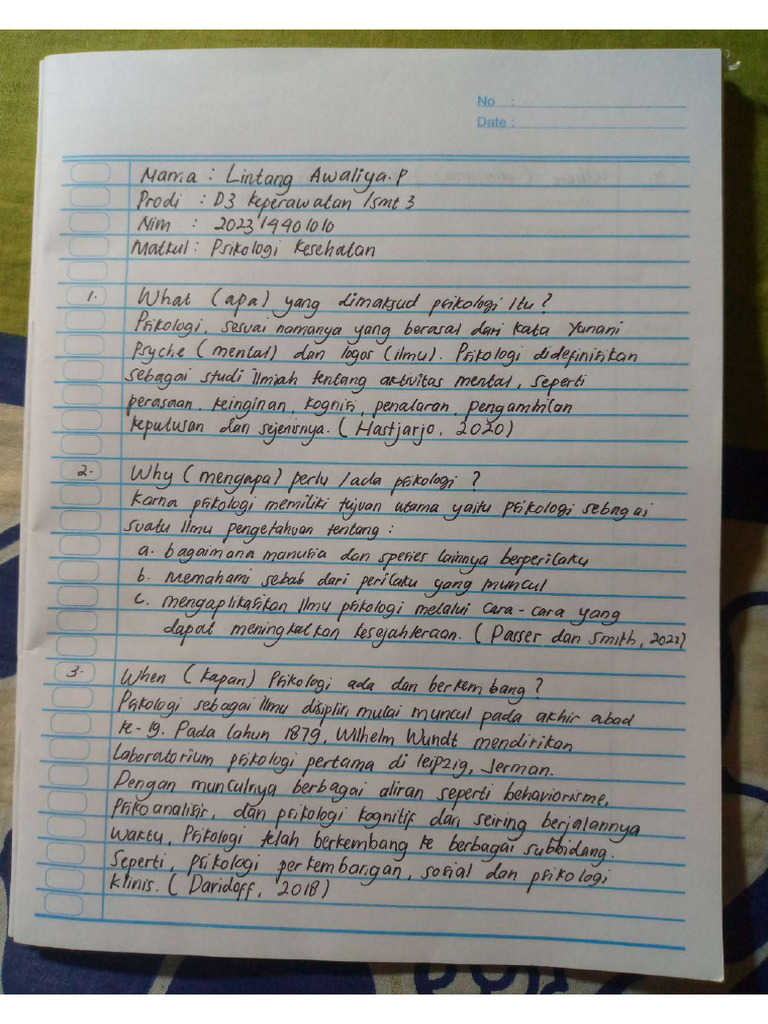 No :
Date :
Nama : Lintang Awaliya.P
Prodi : D3 Keperawatan /smt 3
Nim : 202314401010
Matkul : Psikologi Kesehatan
1. What (apa) yang dimaksud psikologi itu?
Psikologi, sesuai namanya yang berasal dari kata Yunani
Psyche (mental) dan logos (ilmu). Psikologi didefinisikan
sebagai studi ilmiah tentang aktivitas mental, seperti
perasaan, keinginan, kognisi, penalaran, pengambilan
keputusan dan sejenisnya. (Hastjarjo, 2020)
2. Why (mengapa) perlu /ada psikologi ?
Karna psikologi memiliki tujuan utama yaitu psikologi sebagai
suatu ilmu pengetahuan tentang :
a. bagaimana manusia dan spesies lainnya berperilaku
b. Memahami sebab dari perilaku yang muncul
c. mengaplikasikan ilmu psikologi melalui cara-cara yang
dapat meningkatkan kesejahteraan. (Passer dan Smith, 2021)
3. When (kapan) Psikologi ada dan berkembang?
Psikologi sebagai ilmu disiplin mulai muncul pada akhir abad
ke-19. Pada tahun 1879, Wilhelm Wundt mendirikan
Laboratorium psikologi pertama di leipzig, Jerman.
Dengan munculnya berbagai aliran seperti behaviorisme,
Psikoanalisis, dan psikologi kognitif dan seiring berjalannya
waktu, Psikologi telah berkembang ke berbagai subbidang.
Seperti, psikologi perkembangan, sosial dan psikologi
klinis. (Davidoff, 2018)